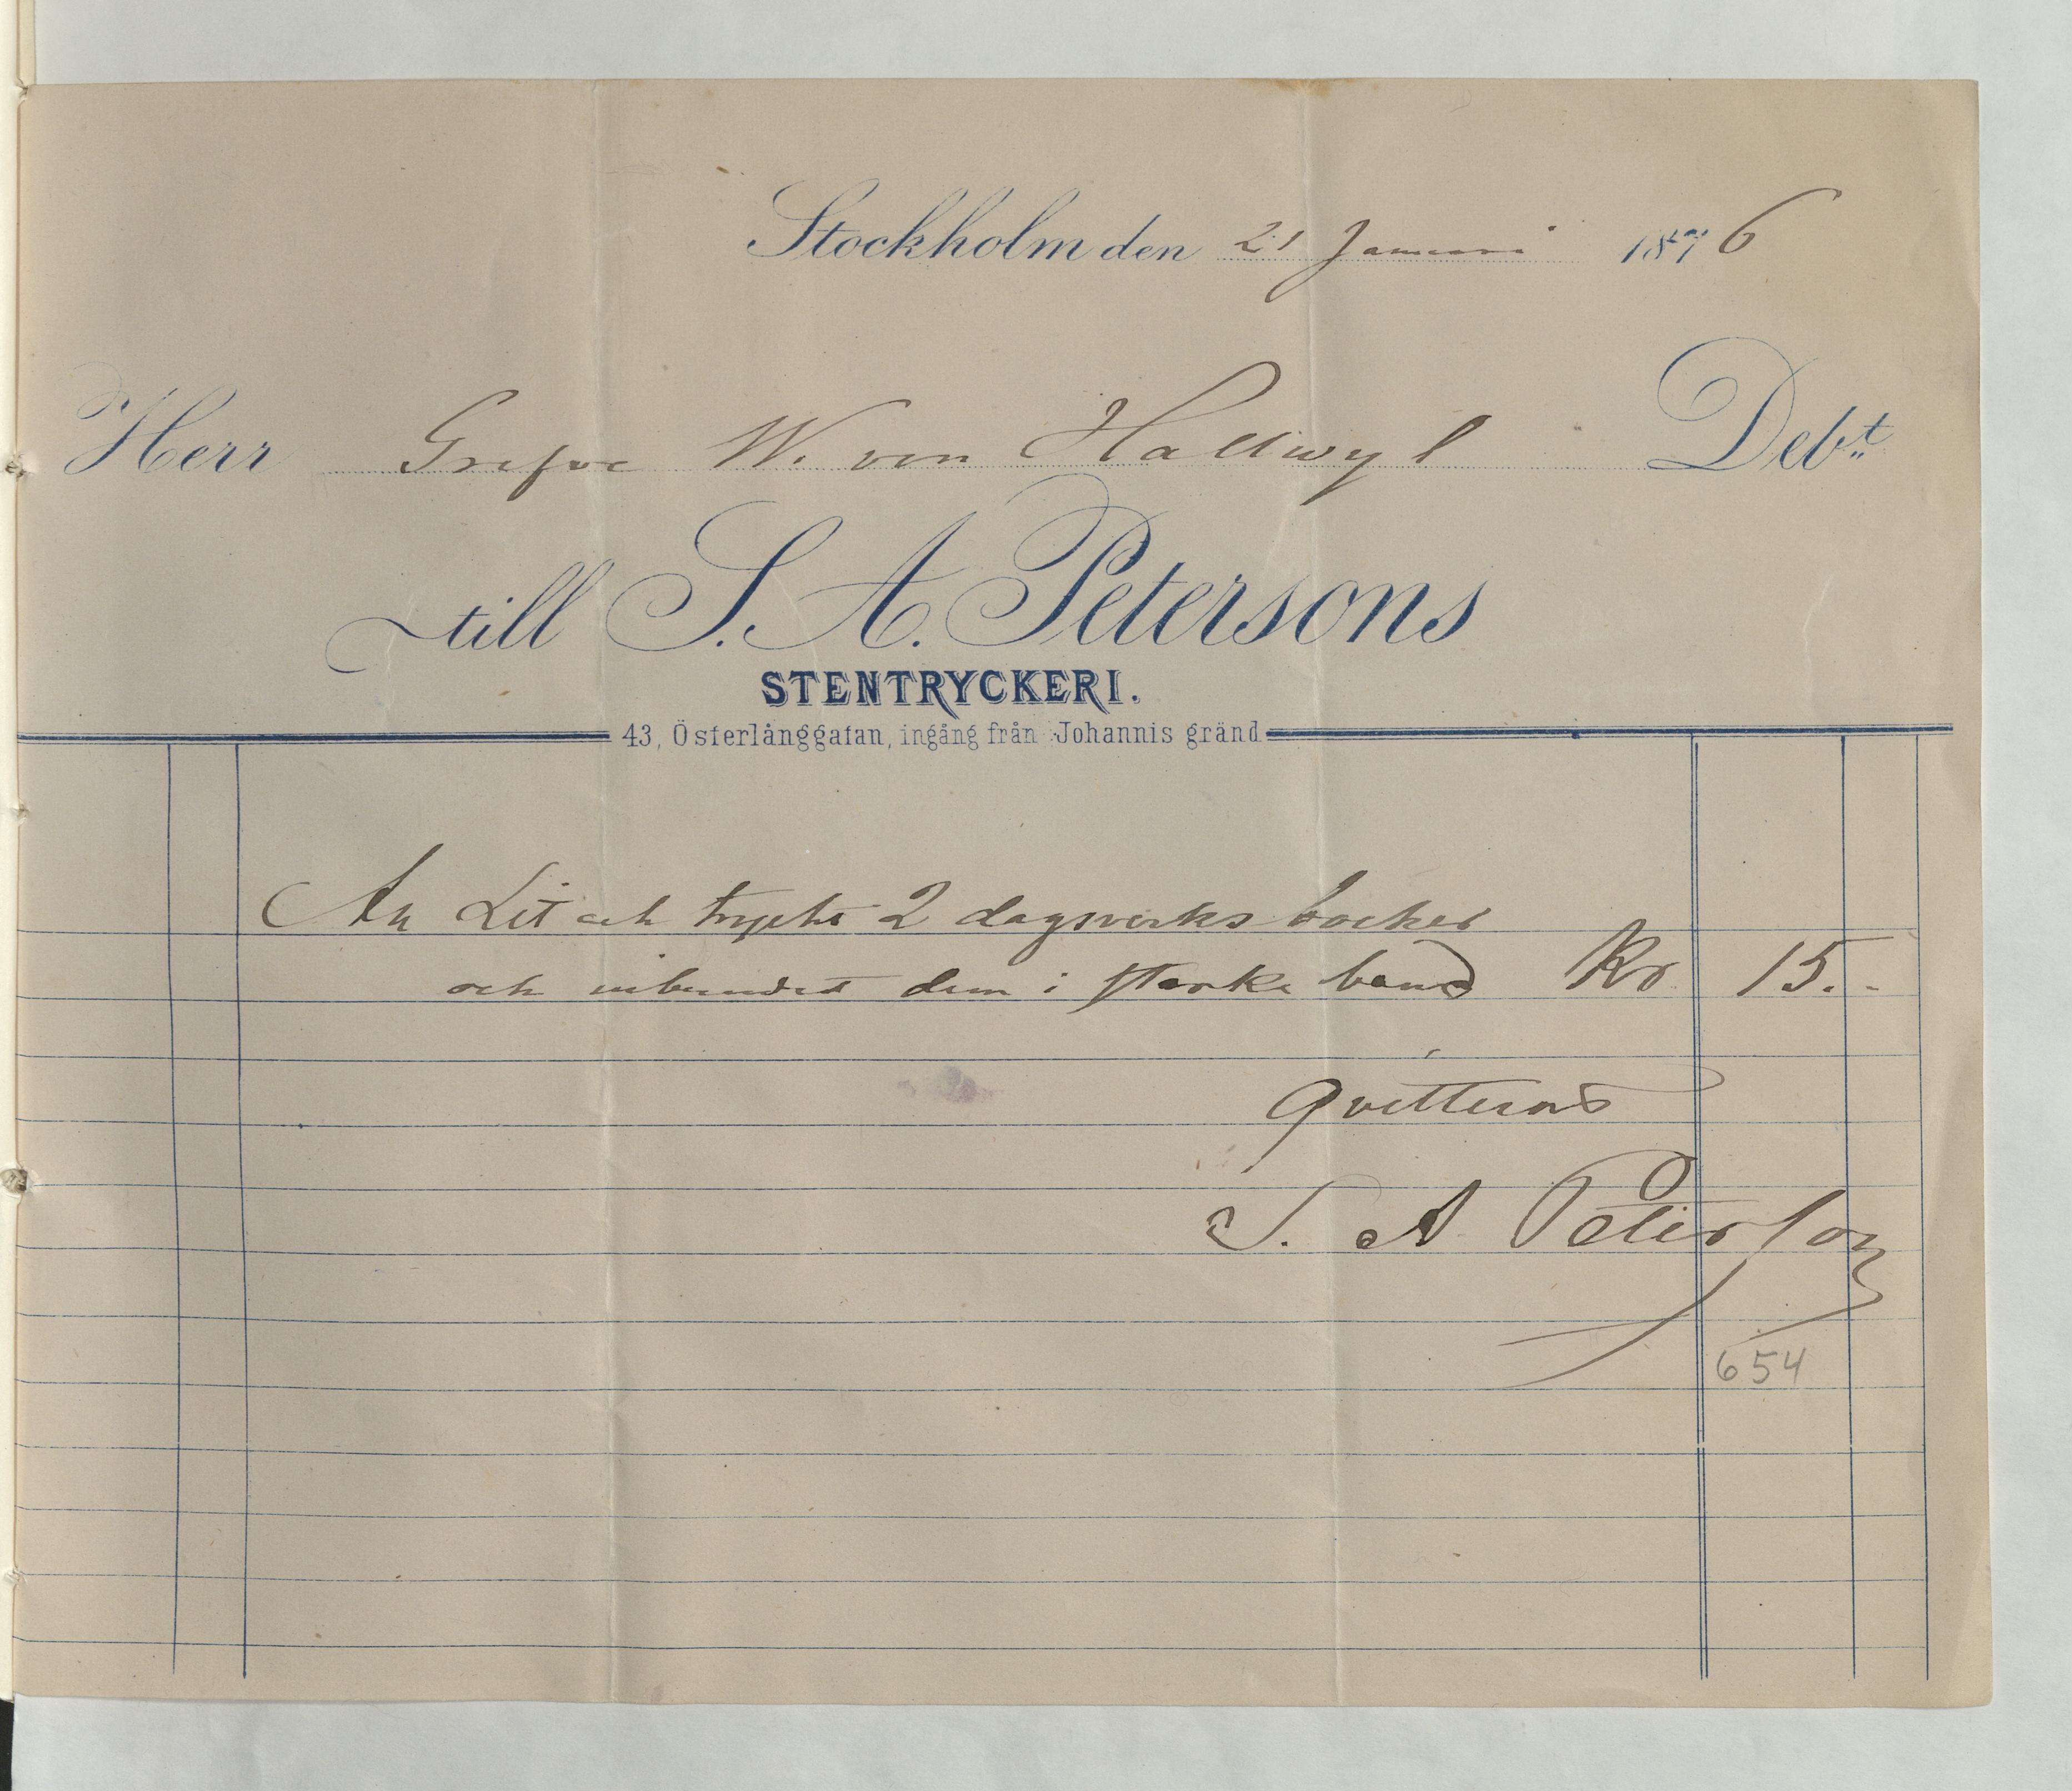 Stockholm den 21 Januari 1876
Herr Grefve W. von Hallwyl Deb.t
till S. A. Petersons
STENTRYCKERI.
43, Österlånggatan, ingång från Johannis gränd
An Lit och tryckt 2 dagsverks böcker
och inbundet dem i starka band Kr 15.-
Qvitteras
S. A Peterson
654